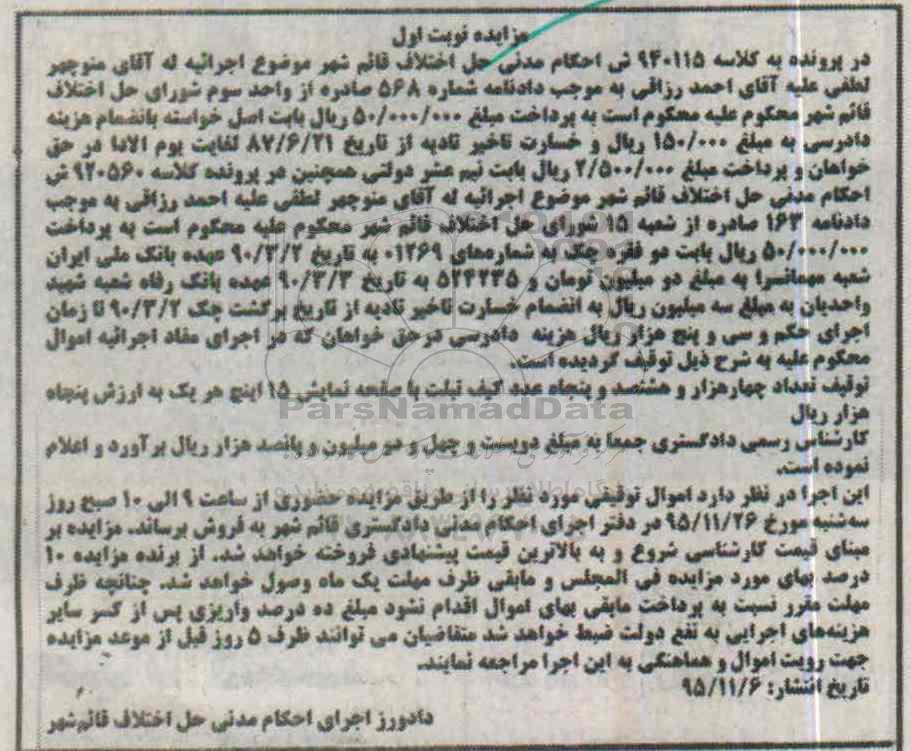 مزایده نوبت اول
در پرونده به کلاسه ۹۴۰۱۱۵ ش احکام مدنی حل اختلاف قائم شهر موضوع اجرائیه له آقای منوچهر
لطفی علیه آقای احمد رزاقی به موجب دادنامه شماره ۵۶۸ صادره از واحد سوم شورای حل اختلاف
قائم شهر محکوم علیه محکوم است به پرداخت مبلغ ۵۰/۰۰۰/۰۰۰ ریال بابت اصل خواسته بانضمام هزینه
دادرسی به مبلغ ۱۵۰/۰۰۰ ریال و خسارت تاخیر تادیه از تاریخ ۸۷/۶/۲۱ لغایت یوم الادا در حق
خواهان و پرداخت مبلغ ۲/۵۰۰/۰۰۰ ریال بابت نیم عشر دولتی همچنین در پرونده کلاسه ۹۲۰۵۶۰ ش
احکام مدنی حل اختلاف قائم شهر موضوع اجرائیه له آقای منوچهر لطفی علیه احمد رزاقی به موجب
دادنامه ۱۶۳ صادره از شعبه ۱۵ شورای حل اختلاف قائم شهر محکوم علیه محکوم است به پرداخت
۵۰/۰۰۰/۰۰۰ ریال بابت دو فقره چک به شماره‌های ۰۱۲۶۹ به تاریخ ۹۰/۳/۲ عهده بانک ملی ایران
شعبه مهمانسرا به مبلغ دو میلیون تومان و ۵۲۴۲۳۵ به تاریخ ۹۰/۳/۳ عهده بانک رفاه شعبه شهید
واحدیان به مبلغ سه میلیون ریال به انضمام خسارت تاخیر تادیه از تاریخ برگشت چک ۹۰/۳/۲ تا زمان
اجرای حکم و سی و پنج هزار ریال هزینه دادرسی در حق خواهان که در اجرای مفاد اجرائیه اموال
محکوم علیه به شرح ذیل توقیف گردیده است.
توقیف تعداد چهارهزار و هشتصد و پنجاه عدد کیف تبلت با صفحه نمایش ۱۵ اینچ هر یک به ارزش پنجاه
هزار ریال
ParsNamadData
کارشناس رسمی دادگستری جمعا به مبلغ دویست و چهل و دو میلیون و پانصد هزار ریال برآورد و اعلام
نموده است.
این اجرا در نظر دارد اموال توقیفی مورد نظر را از طریق مزایده حضوری از ساعت ۹ الی ۱۰ صبح روز
سه‌شنبه مورخ ۹۵/۱۱/۲۶ در دفتر اجرای احکام مدنی دادگستری قائم شهر به فروش برساند. مزایده بر
مبنای قیمت کارشناسی شروع و به بالاترین قیمت پیشنهادی فروخته خواهد شد. از برنده مزایده ۱۰
درصد بهای مورد مزایده فی المجلس و مابقی ظرف مهلت یک ماه وصول خواهد شد. چنانچه ظرف
مهلت مقرر نسبت به پرداخت مابقی بهای اموال اقدام نشود مبلغ ده درصد واریزی پس از کسر سایر
هزینه‌های اجرایی به نفع دولت ضبط خواهد شد متقاضیان می توانند ظرف ۵ روز قبل از موعد مزایده
جهت رویت اموال و هماهنگی به این اجرا مراجعه نمایند.
تاریخ انتشار: ۹۵/۱۱/۶
دادورز اجرای احکام مدنی حل اختلاف قائم‌شهر